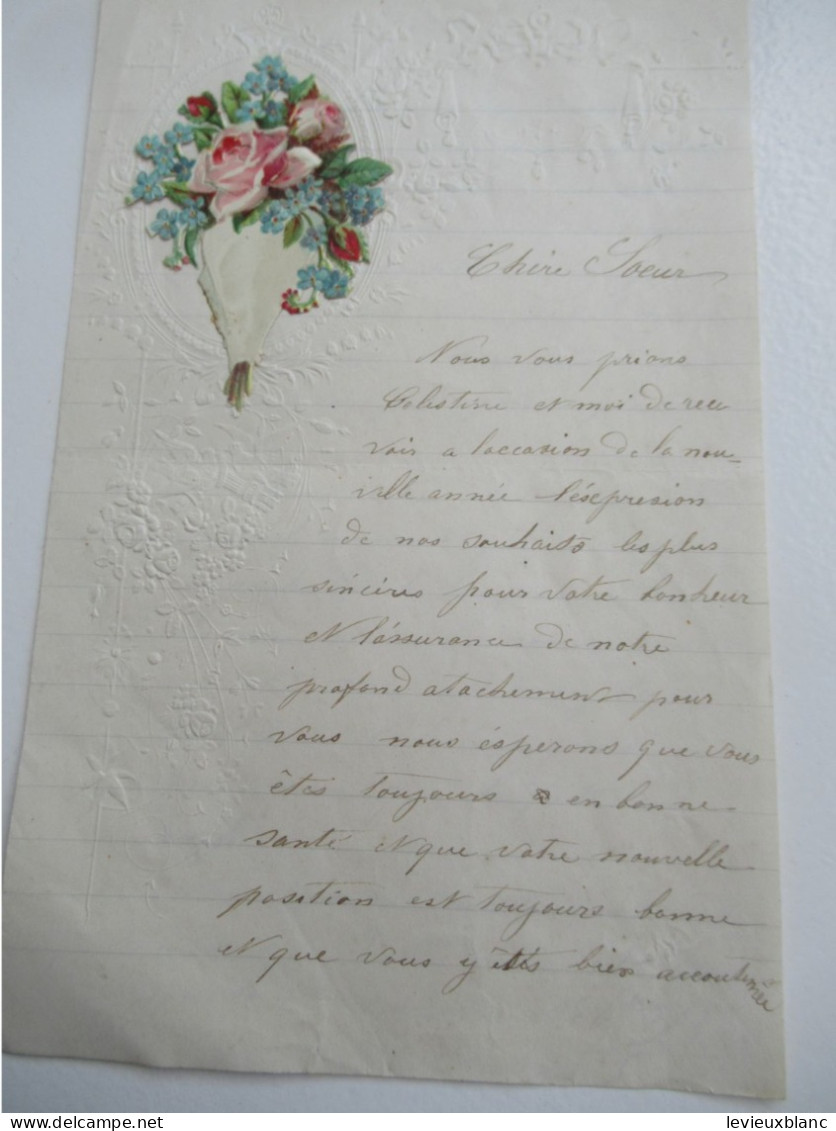 Chère Soeur
Nous vous prions
Celestine et moi de rece
voir a l'occasion de la nou-
velle année l'éxpresion
de nos souhaits les plus
sincères pour votre bonheur
et l'assurance de notre
profond atachement pour
vous nous ésperons que vous
êtes toujours en bonne
santé et que votre nouvelle
position est toujours bonne
et que vous y êtes bien accoutumée
levieuxblanc